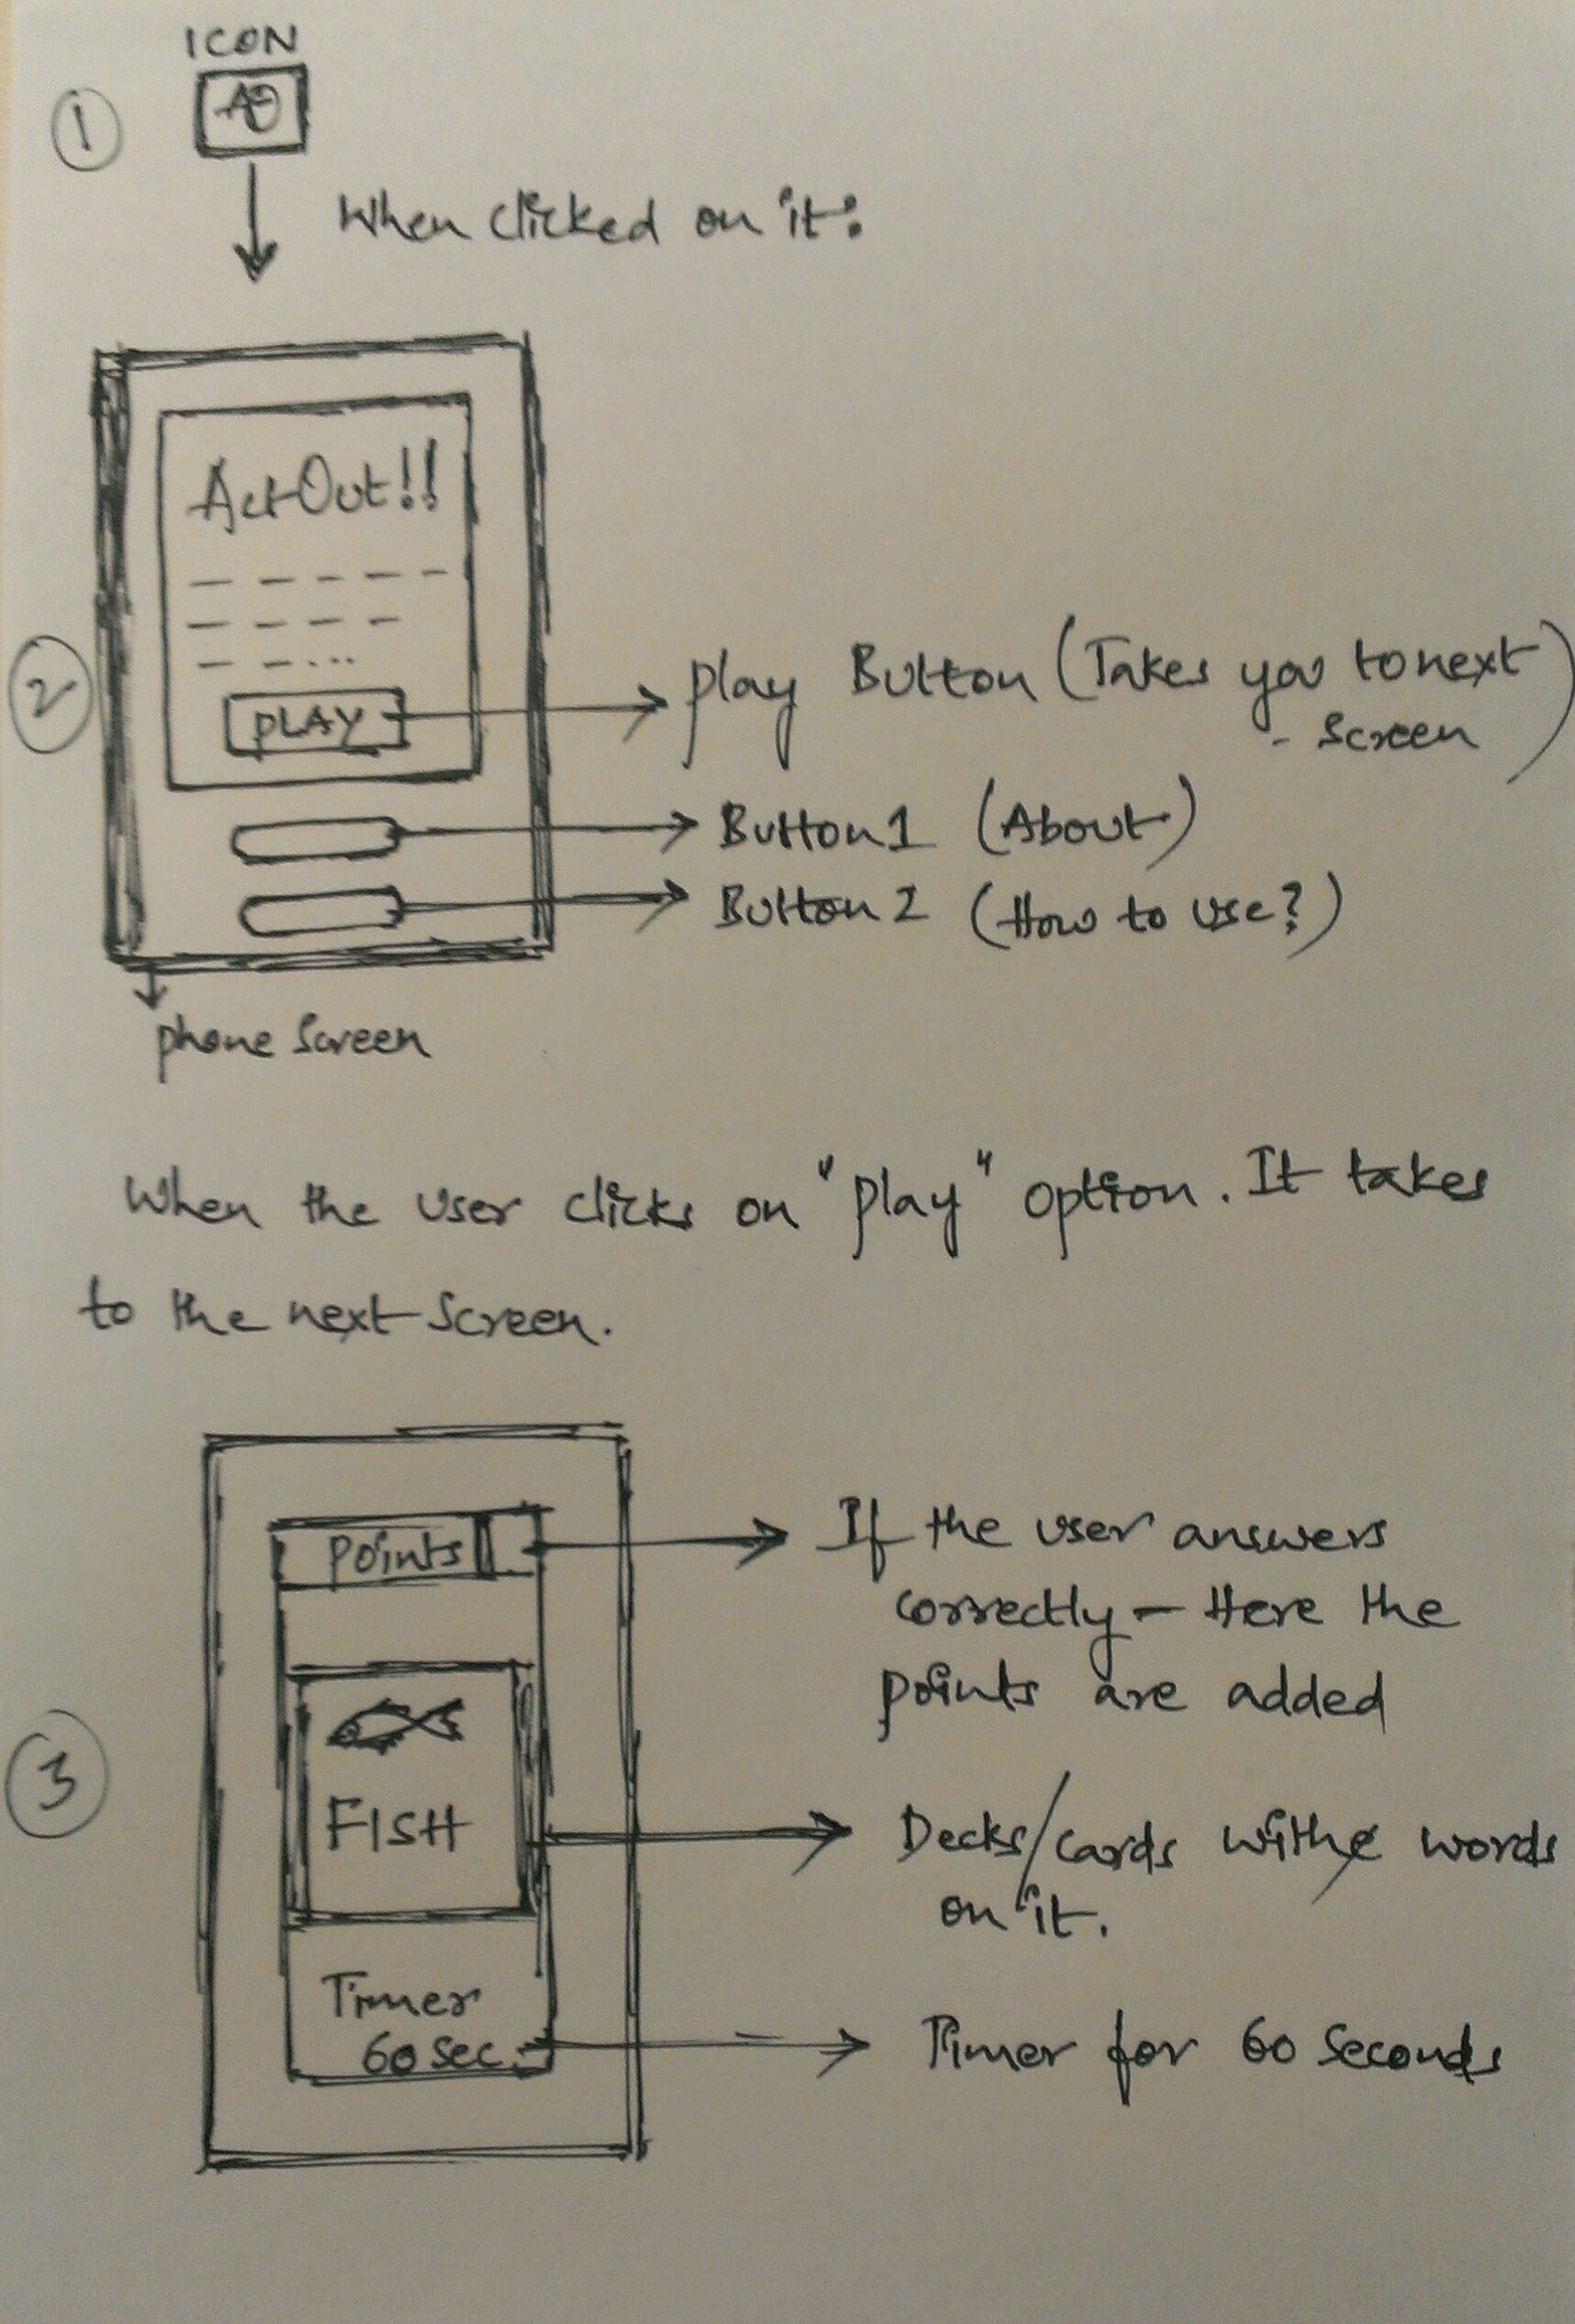 ICON
1
AO
When clicked on it:
Act Out!!
2
PLAY
play Button (Takes you to next
- Screen)
Button 1 (About)
Button 2 (How to use?)
phone Screen
When the user clicks on "play" option. It takes
to the next screen.
points
If the user answers
correctly - Here the
points are added
3
FISH
Decks/cards withe words
on it.
Timer
60 sec.
Timer for 60 Seconds